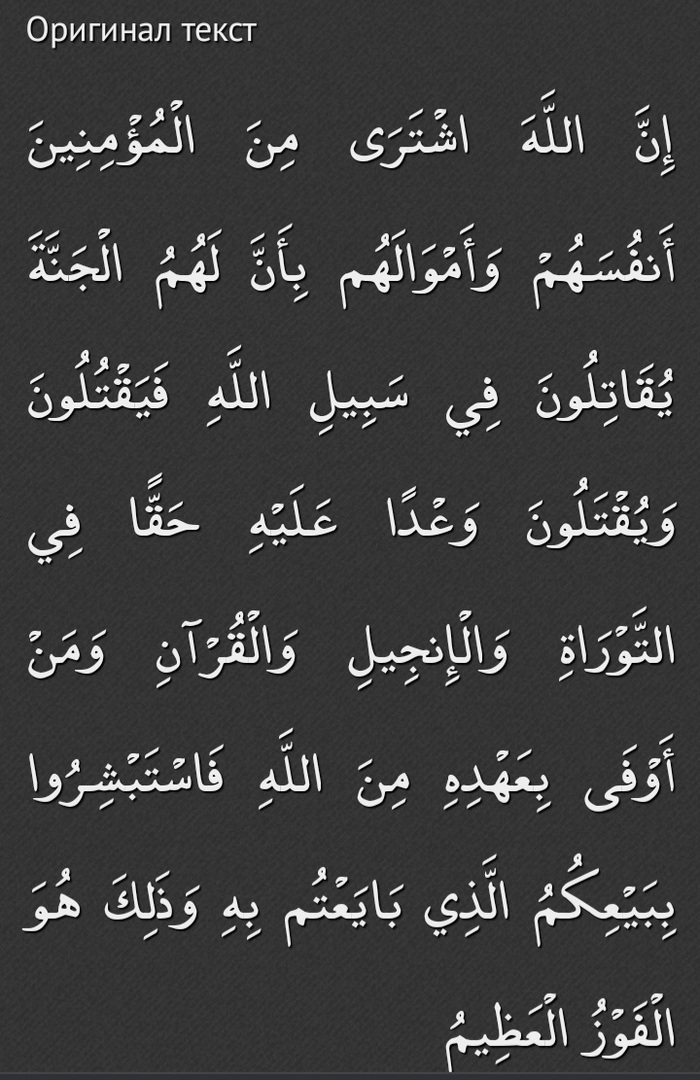 Оригинал текст
إِنَّ اللَّهَ اشْتَرَى مِنَ الْمُؤْمِنِينَ
أَنفُسَهُمْ وَأَمْوَالَهُم بِأَنَّ لَهُمُ الْجَنَّةَ
يُقَاتِلُونَ فِي سَبِيلِ اللَّهِ فَيَقْتُلُونَ
وَيُقْتَلُونَ وَعْدًا عَلَيْهِ حَقًّا فِي
التَّوْرَاةِ وَالْإِنجِيلِ وَالْقُرْآنِ وَمَنْ
أَوْفَى بِعَهْدِهِ مِنَ اللَّهِ فَاسْتَبْشِرُوا
بِبَيْعِكُمُ الَّذِي بَايَعْتُم بِهِ وَذَلِكَ هُوَ
الْفَوْزُ الْعَظِيمُ